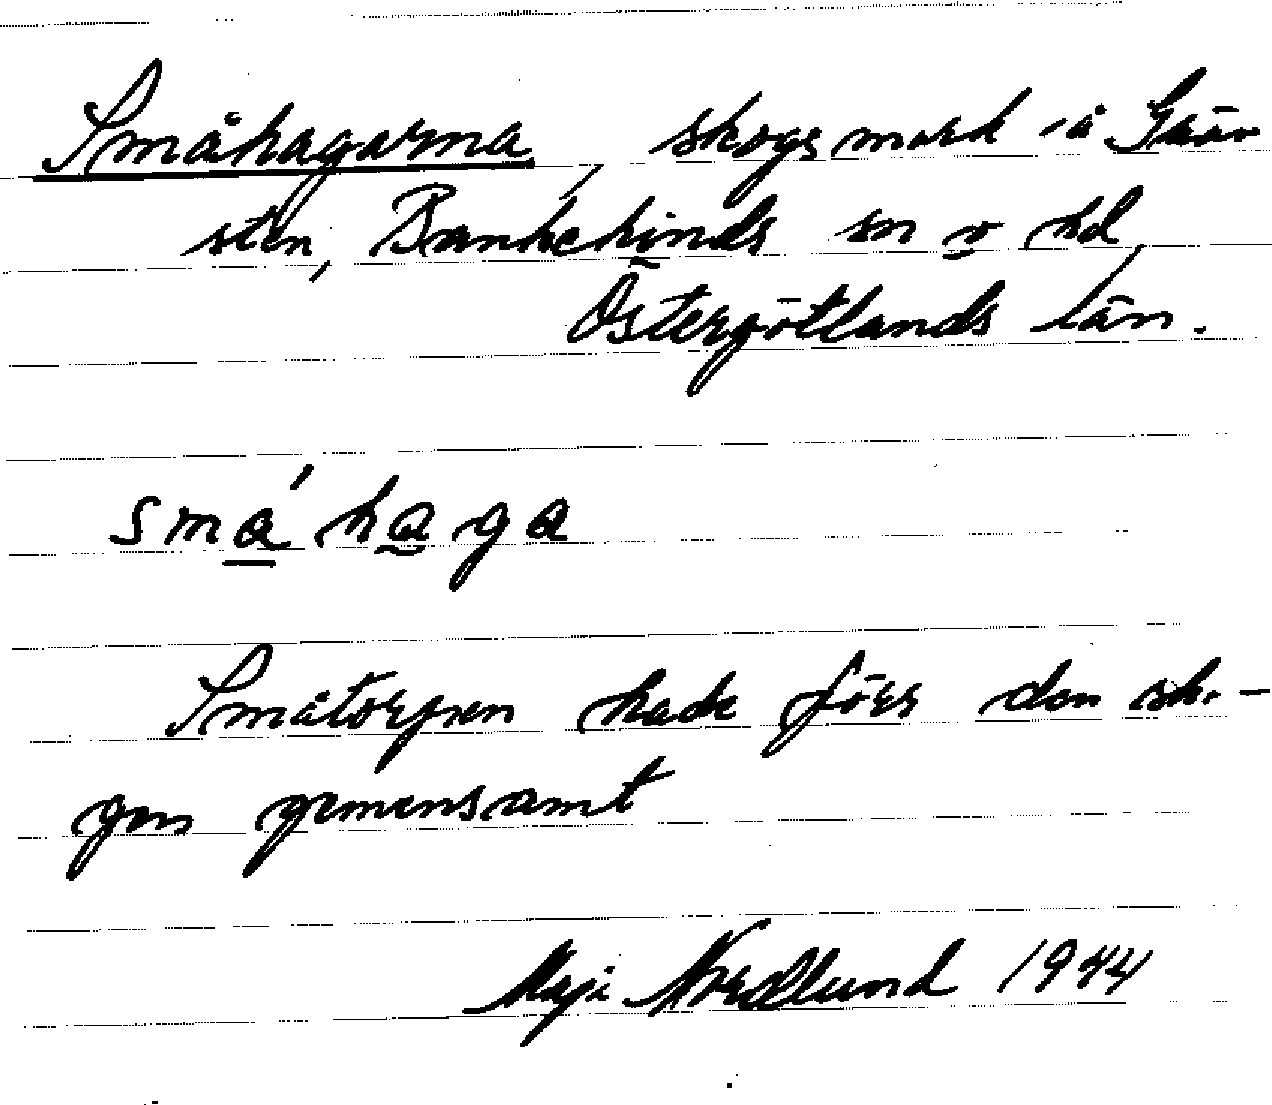 Småhagarna, skogsmark å Grän-
sten, Bankekinds sn o hd,
Östergötlands län.
småhaga
Småtorpen hade förr den sko-
gen gemensamt
Maja Nordlund 1944